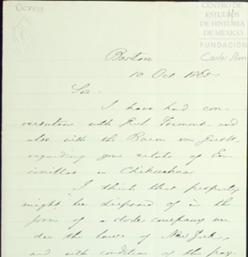 CENTRO
DE ESTUDIOS
DE HISTORIA
DE MEXICO
FUNDACIÓN
Carlos Slim
Boston
10 Oct 1865
Sir.
I have had con
versation with Genl Fremont and
also with the Baron von
regarding your estate of En
cinillas in Chihuahua
I think that property
might be disposed of in the
form of a stock company un
der the laws of New York,
and with condition of the pay